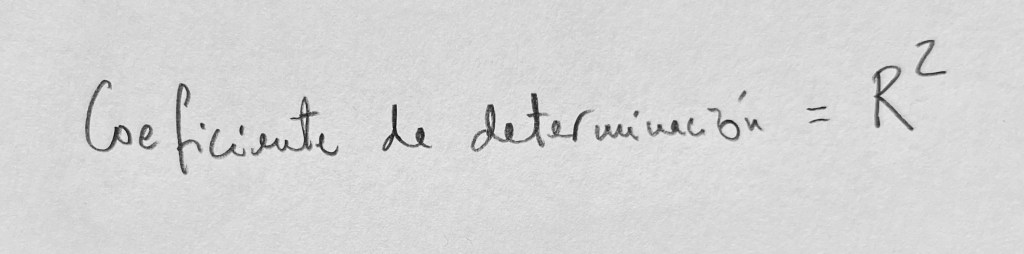 Coeficiente de determinación = R²